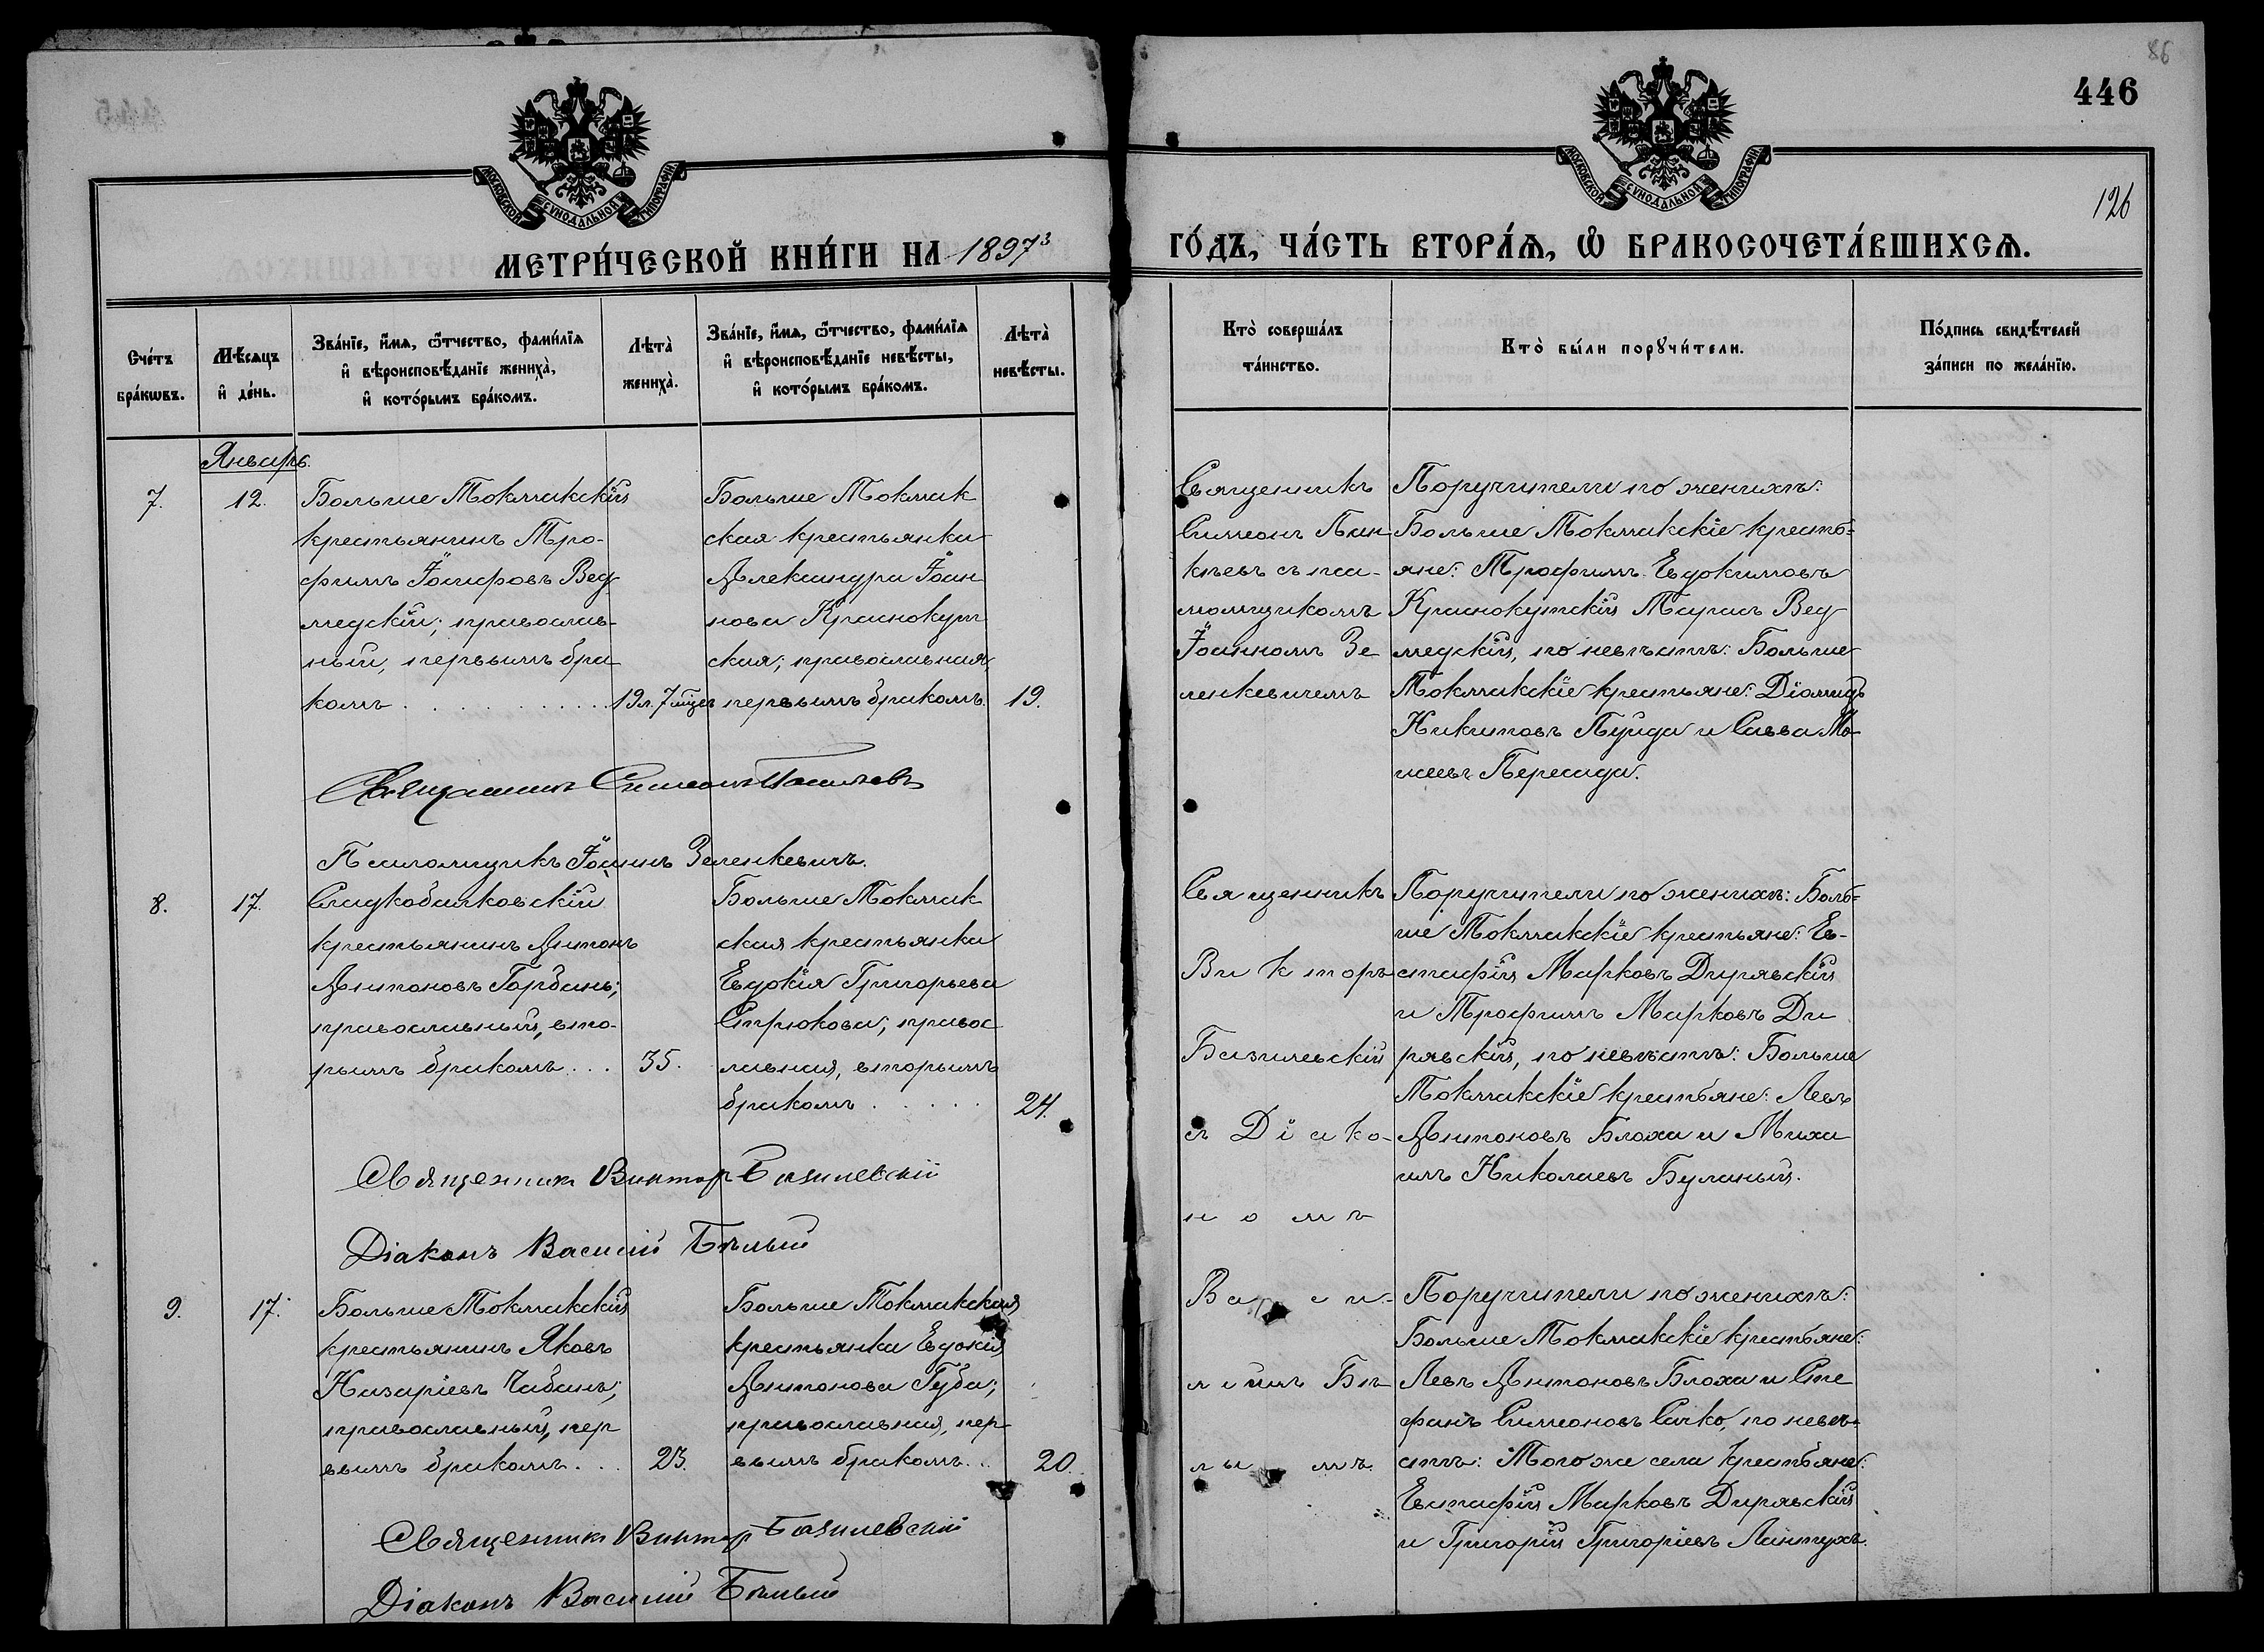 86
446
445
126
МОСКОВСКОЙ СѴНОДАЛЬНОЙ ТИПОГРАФІИ
МОСКОВСКОЙ СѴНОДАЛЬНОЙ ТИПОГРАФІИ
МЕТРИ́ЧЕСКОЙ КНИ́ГИ НА 1897й
ГО́ДЪ, ЧА́СТЬ ВТОРА́Ѧ, Ѡ҆ БРАКОСОЧЕТА́ВШИХСѦ.
Сче́тъ
бра́кѡвъ.
Мѣ́сѧцъ
и҆ де́нь.
Зва́нїе, и҆́мѧ, ѻ҆́тчество, фамі́лїѧ
и҆ вѣроисповѣ́данїе жениха̀,
и҆ кото́рымъ бра́комъ.
Лѣта̀
жениха̀.
Зва́нїе, и҆́мѧ, ѻ҆́тчество, фамі́лїѧ
и҆ вѣроисповѣ́данїе невѣ́сты,
и҆ кото́рымъ бра́комъ.
Лѣта̀
невѣ́сты.
Кто̀ соверша́лъ
та́инство.
Кто̀ бы́ли порꙋчи́тели.
По́дпись свидѣ́телей
за́писи по жела́нїю.
Январь.
7.
12.
Больше Токмакскій
крестьянинъ Тро-
фимъ Іосифовъ Вед
медскій; православ-
ный, первымъ бра
комъ
19 л. 7 мцев
Больше Токмак
ская крестьянка
Александра Іоан
нова Краснокут
ская; православная,
первымъ бракомъ.
19.
Священникъ
Симеонъ Пан-
кѣевъ съ пса-
ломщикомъ
Іоанномъ Зе
ленкевичемъ
Поручители по женихѣ:
Больше Токмакскіе кресть=
яне: Трофимъ Евдокимовъ
Краснокутскій Тарасъ Вед
медскій, по невѣстѣ: Больше
Токмакскіе крестьяне: Діомидъ
Никитовъ Пуйда и Савва Мо
исеевъ Пересада.
Священникъ Симеонъ Панкѣевъ
Псаломщикъ Іоаннъ Зеленкевичъ.
8.
17.
Сладкобалковскій
крестьянинъ Антонъ
Антоновъ Горбань;
православный, вто-
рымъ бракомъ
35.
Больше Токмак
ская крестьянка
Евдокія Григорьева
Стрюкова; правос
лавная, вторымъ
бракомъ
24.
Священникъ
Викторъ
Базилевскій
съ Діако-
номъ
Васи-
ліемъ Бѣ-
лымъ.
Поручители по женихѣ: Боль=
ше Токмакскіе крестьяне: Ев-
стафій Марковъ Дирявскій
и Трофимъ Марковъ Ди
рявскій, по невѣстѣ: Больше
Токмакскіе крестьяне: Левъ
Антоновъ Блоха и Миха
илъ Николаевъ Буланый.
Священникъ Викторъ Базилевскій
Діаконъ Василій Бѣлый
9.
17.
Больше Токмакскій
крестьянинъ Яковъ
Назаріевъ Чабанъ;
православный, пер
вымъ бракомъ
23.
Больше Токмакская
крестьянка Евдокія
Антонова Губа;
православная, пер
вымъ бракомъ
20.
Поручители по женихѣ:
Больше Токмакскіе крестьяне:
Левъ Антоновъ Блоха и Сте
фанъ Симеоновъ Сачко, по невѣ=
стѣ: Того же села крестьяне:
Евстафій Марковъ Дирявскій
и Григорій Григоріевъ Линтухъ.
Священникъ Викторъ Базилевскій
Діаконъ Василій Бѣлый